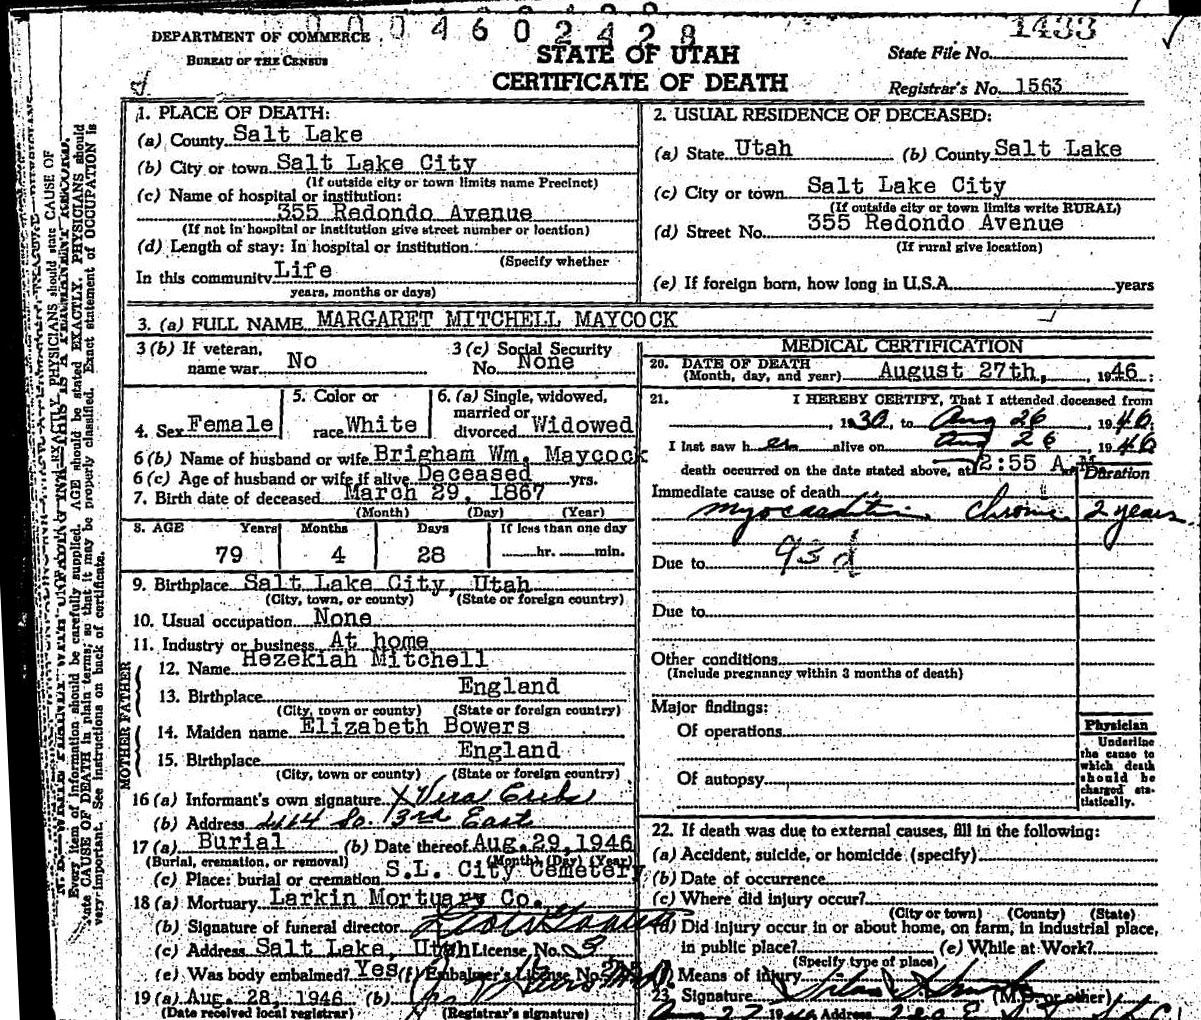 0004602428
1433
DEPARTMENT OF COMMERCE
BUREAU OF THE CENSUS
STATE OF UTAH
CERTIFICATE OF DEATH
State File No.
Registrar's No. 1563
1. PLACE OF DEATH:
(a) County Salt Lake
(b) City or town Salt Lake City
(If outside city or town limits name Precinct)
(c) Name of hospital or institution:
355 Redondo Avenue
(If not in hospital or institution give street number or location)
(d) Length of stay: In hospital or institution
(Specify whether
In this community Life
years, months or days)
2. USUAL RESIDENCE OF DECEASED:
(a) State Utah (b) County Salt Lake
(c) City or town Salt Lake City
(If outside city or town limits write RURAL)
(d) Street No. 355 Redondo Avenue
(If rural give location)
(e) If foreign born, how long in U.S.A. years
3. (a) FULL NAME MARGARET MITCHELL MAYCOCK
3 (b) If veteran,
name war No
3 (c) Social Security
No. None
4. Sex Female
5. Color or
race White
6. (a) Single, widowed,
married or
divorced Widowed
6 (b) Name of husband or wife Brigham Wm. Maycock
6 (c) Age of husband or wife if alive Deceased yrs.
7. Birth date of deceased March 29, 1867
(Month) (Day) (Year)
8. AGE Years Months Days If less than one day
79 4 28 hr. min.
9. Birthplace Salt Lake City, Utah
(City, town, or county) (State or foreign country)
10. Usual occupation None
11. Industry or business At home
FATHER
12. Name Hezekiah Mitchell
13. Birthplace England
(City, town or county) (State or foreign country)
MOTHER
14. Maiden name Elizabeth Bowers
15. Birthplace England
(City, town or county) (State or foreign country)
16 (a) Informant's own signature X Vera
(b) Address So. 3rd East
17 (a) Burial (b) Date thereof Aug. 29, 1946
(Burial, cremation, or removal) (Month) (Day) (Year)
(c) Place: burial or cremation S.L. City Cemetery
18 (a) Mortuary Larkin Mortuary Co.
(b) Signature of funeral director
(c) Address Salt Lake, Utah License No. 3
(e) Was body embalmed? Yes (f) Embalmer's License No.
19 (a) Aug. 28, 1946 (b)
(Date received local registrar) (Registrar's signature)
MEDICAL CERTIFICATION
20. DATE OF DEATH
(Month, day, and year) August 27th, 1946:
21. I HEREBY CERTIFY, That I attended deceased from
1930, to Aug 26, 1946:
I last saw her alive on Aug 26, 1946
death occurred on the date stated above, at 2:55 A.M.
Duration
Immediate cause of death
myocarditis chronic 2 years
Due to 93d
Due to
Other conditions
(Include pregnancy within 3 months of death)
Major findings:
Of operations
Of autopsy
Physician
Underline
the cause to
which death
should be
charged sta-
tistically.
22. If death was due to external causes, fill in the following:
(a) Accident, suicide, or homicide (specify)
(b) Date of occurrence
(c) Where did injury occur?
(City or town) (County) (State)
(d) Did injury occur in or about home, on farm, in industrial place,
in public place? (e) While at Work?
(Specify type of place)
(f) Means of injury
23. Signature (M.D. or other)
Aug 27 1946 Address
Every item of information should be carefully supplied. AGE should be stated EXACTLY. PHYSICIANS should
state CAUSE OF DEATH in plain terms, so that it may be properly classified. Exact statement of OCCUPATION is
very important. See instructions on back of certificate.